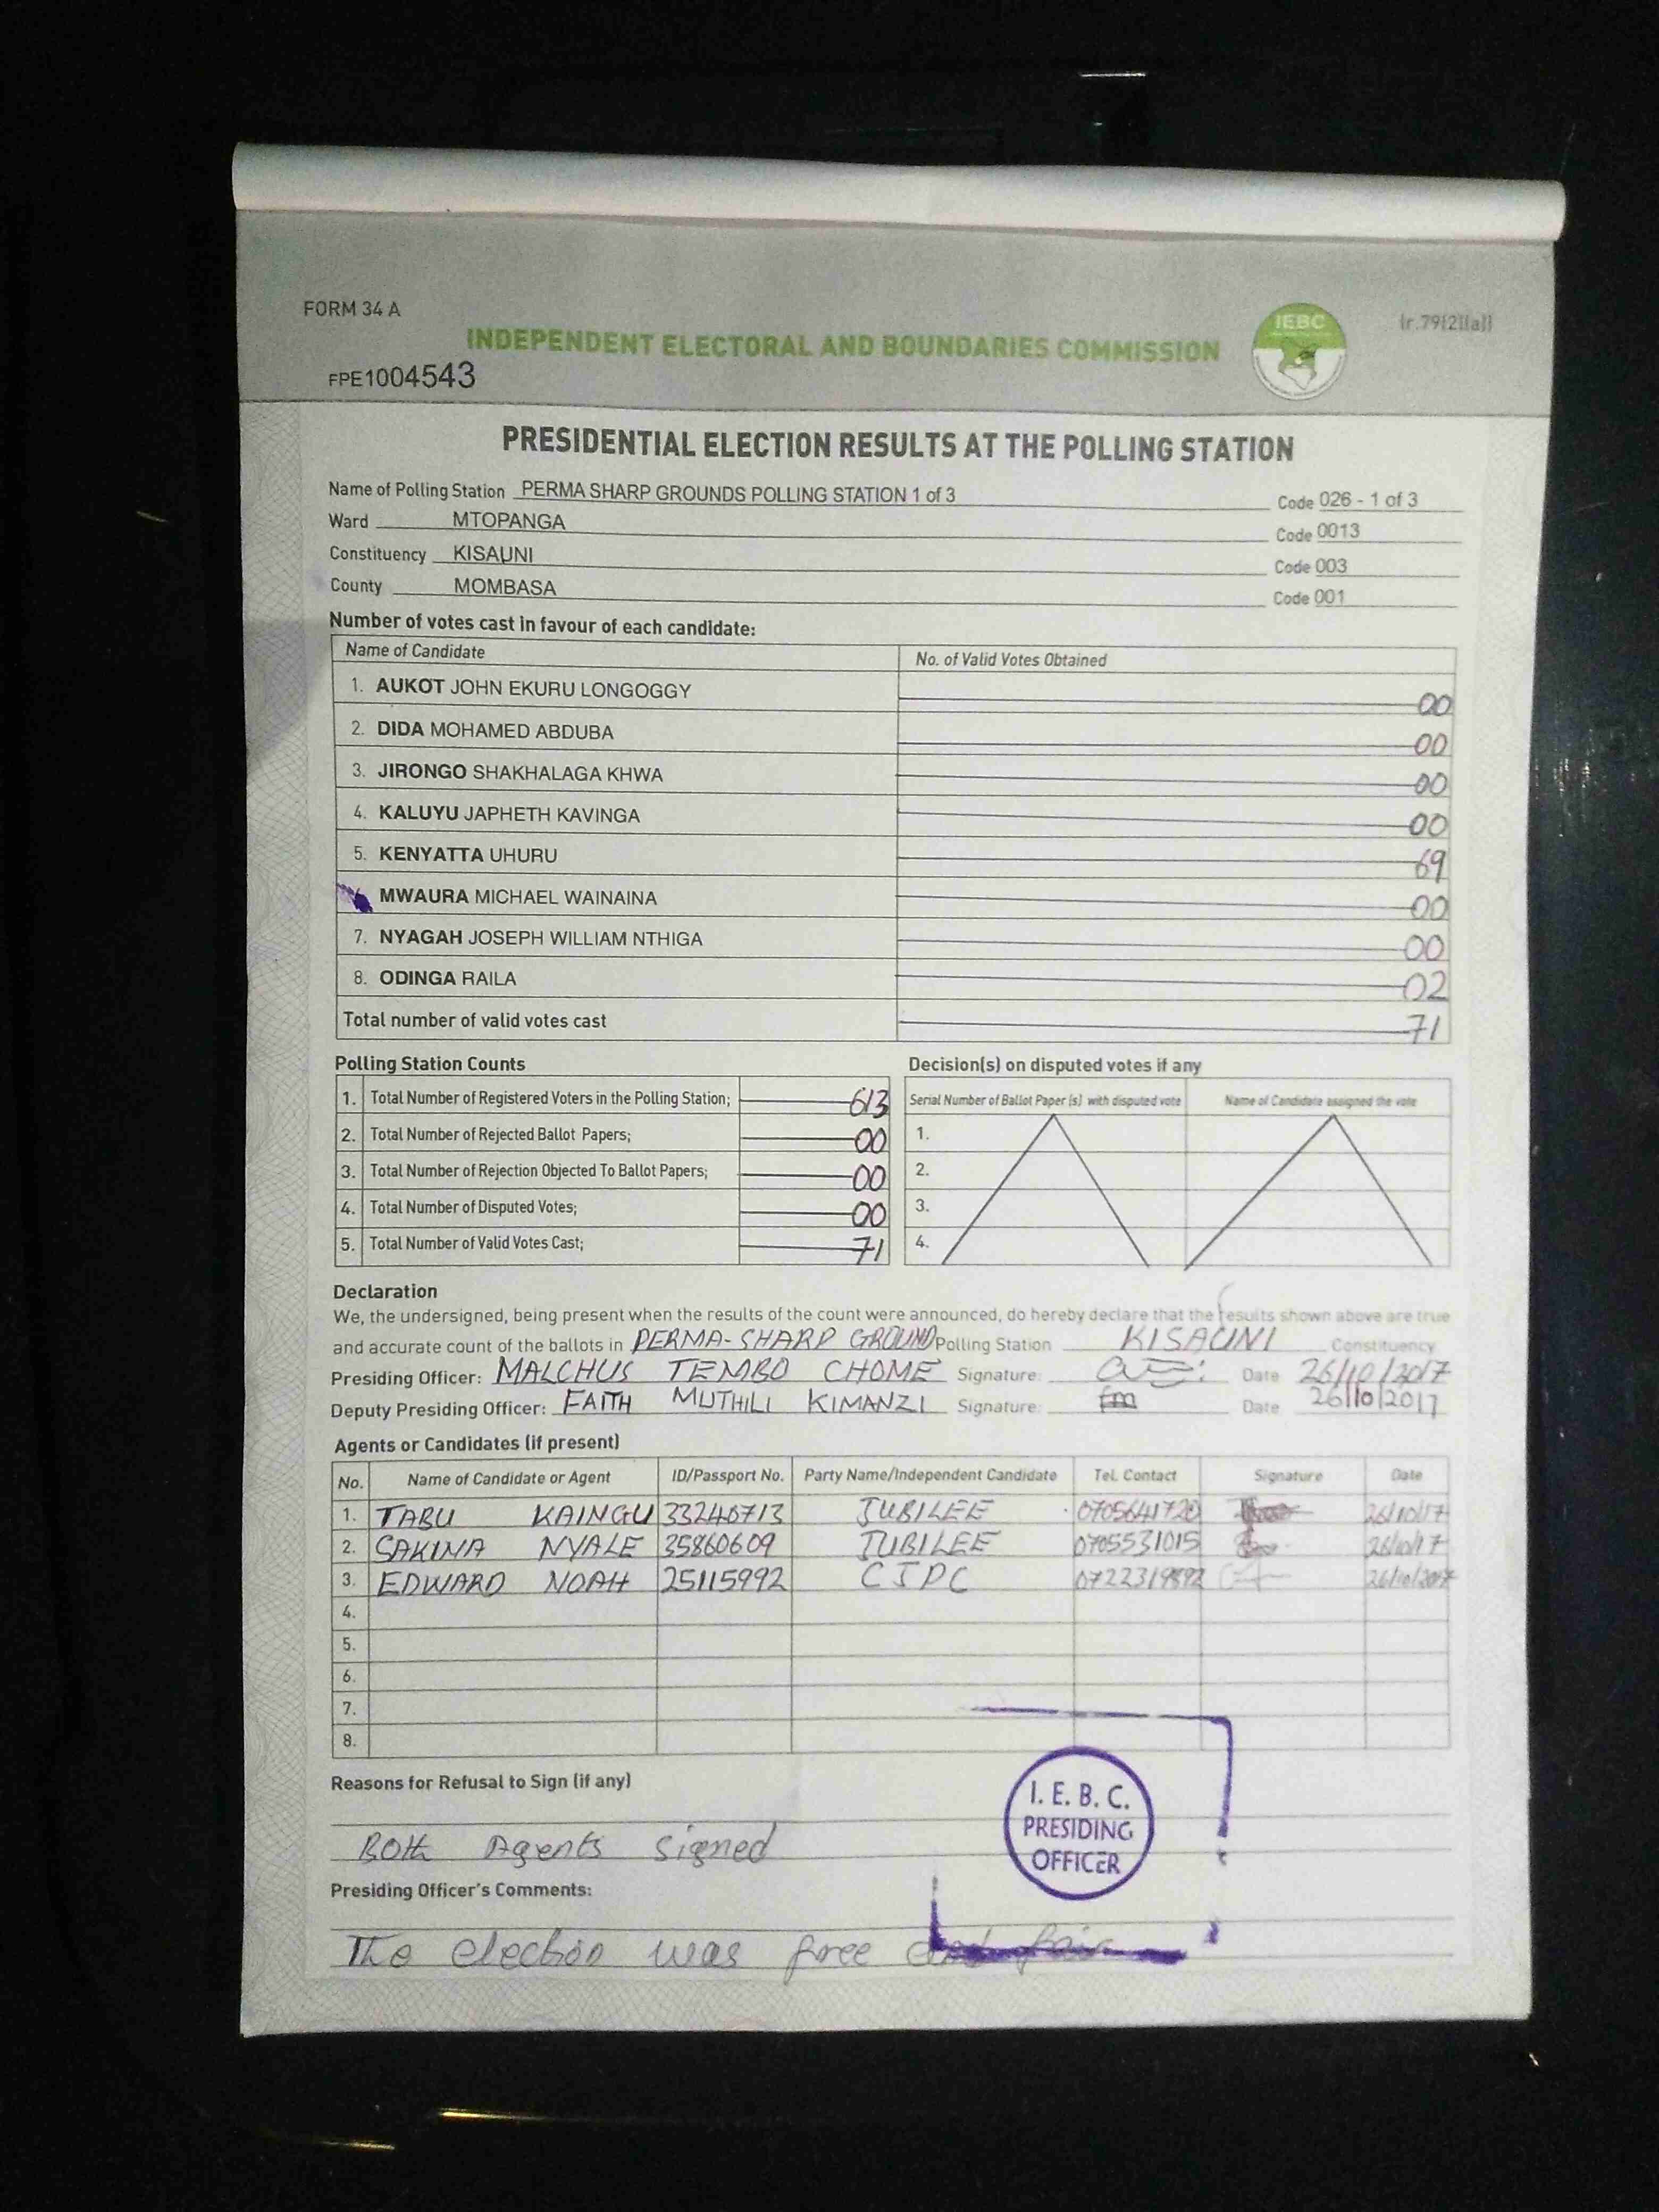 FORM 34 A
IEBC
(r.79(2)(a))
INDEPENDENT ELECTORAL AND BOUNDARIES COMMISSION
FPE1004543
PRESIDENTIAL ELECTION RESULTS AT THE POLLING STATION
Name of Polling Station PERMA SHARP GROUNDS POLLING STATION 1 of 3 Code 026 - 1 of 3
Ward MTOPANGA Code 0013
Constituency KISAUNI Code 003
County MOMBASA Code 001
Number of votes cast in favour of each candidate:
Name of Candidate No. of Valid Votes Obtained
1. AUKOT JOHN EKURU LONGOGGY 00
2. DIDA MOHAMED ABDUBA 00
3. JIRONGO SHAKHALAGA KHWA 00
4. KALUYU JAPHETH KAVINGA 00
5. KENYATTA UHURU 69
MWAURA MICHAEL WAINAINA 00
7. NYAGAH JOSEPH WILLIAM NTHIGA 00
8. ODINGA RAILA 02
Total number of valid votes cast 71
Polling Station Counts
1. Total Number of Registered Voters in the Polling Station; 613
2. Total Number of Rejected Ballot Papers; 00
3. Total Number of Rejection Objected To Ballot Papers; 00
4. Total Number of Disputed Votes; 00
5. Total Number of Valid Votes Cast; 71
Decision(s) on disputed votes if any
Serial Number of Ballot Paper (s) with disputed vote Name of Candidate assigned the vote
1.
2.
3.
4.
Declaration
We, the undersigned, being present when the results of the count were announced, do hereby declare that the results shown above are true
and accurate count of the ballots in PERMA-SHARP GROUND Polling Station KISAUNI Constituency
Presiding Officer: MALCHUS TEMBO CHOME Signature: Date 26/10/2017
Deputy Presiding Officer: FAITH MUTHILI KIMANZI Signature: fm Date 26/10/2017
Agents or Candidates (if present)
No. Name of Candidate or Agent ID/Passport No. Party Name/Independent Candidate Tel. Contact Signature Date
1. TABU KAINGU 33246713 JUBILEE 0705641720 26/10/17
2. SAKINA NYALE 35860609 JUBILEE 0705531015 26/10/17
3. EDWARD NOAH 25115992 CJPC 26/10/2017
4.
5.
6.
7.
8.
Reasons for Refusal to Sign (if any)
Both Agents signed
I. E. B. C.
PRESIDING
OFFICER
Presiding Officer's Comments:
The election was free and fair